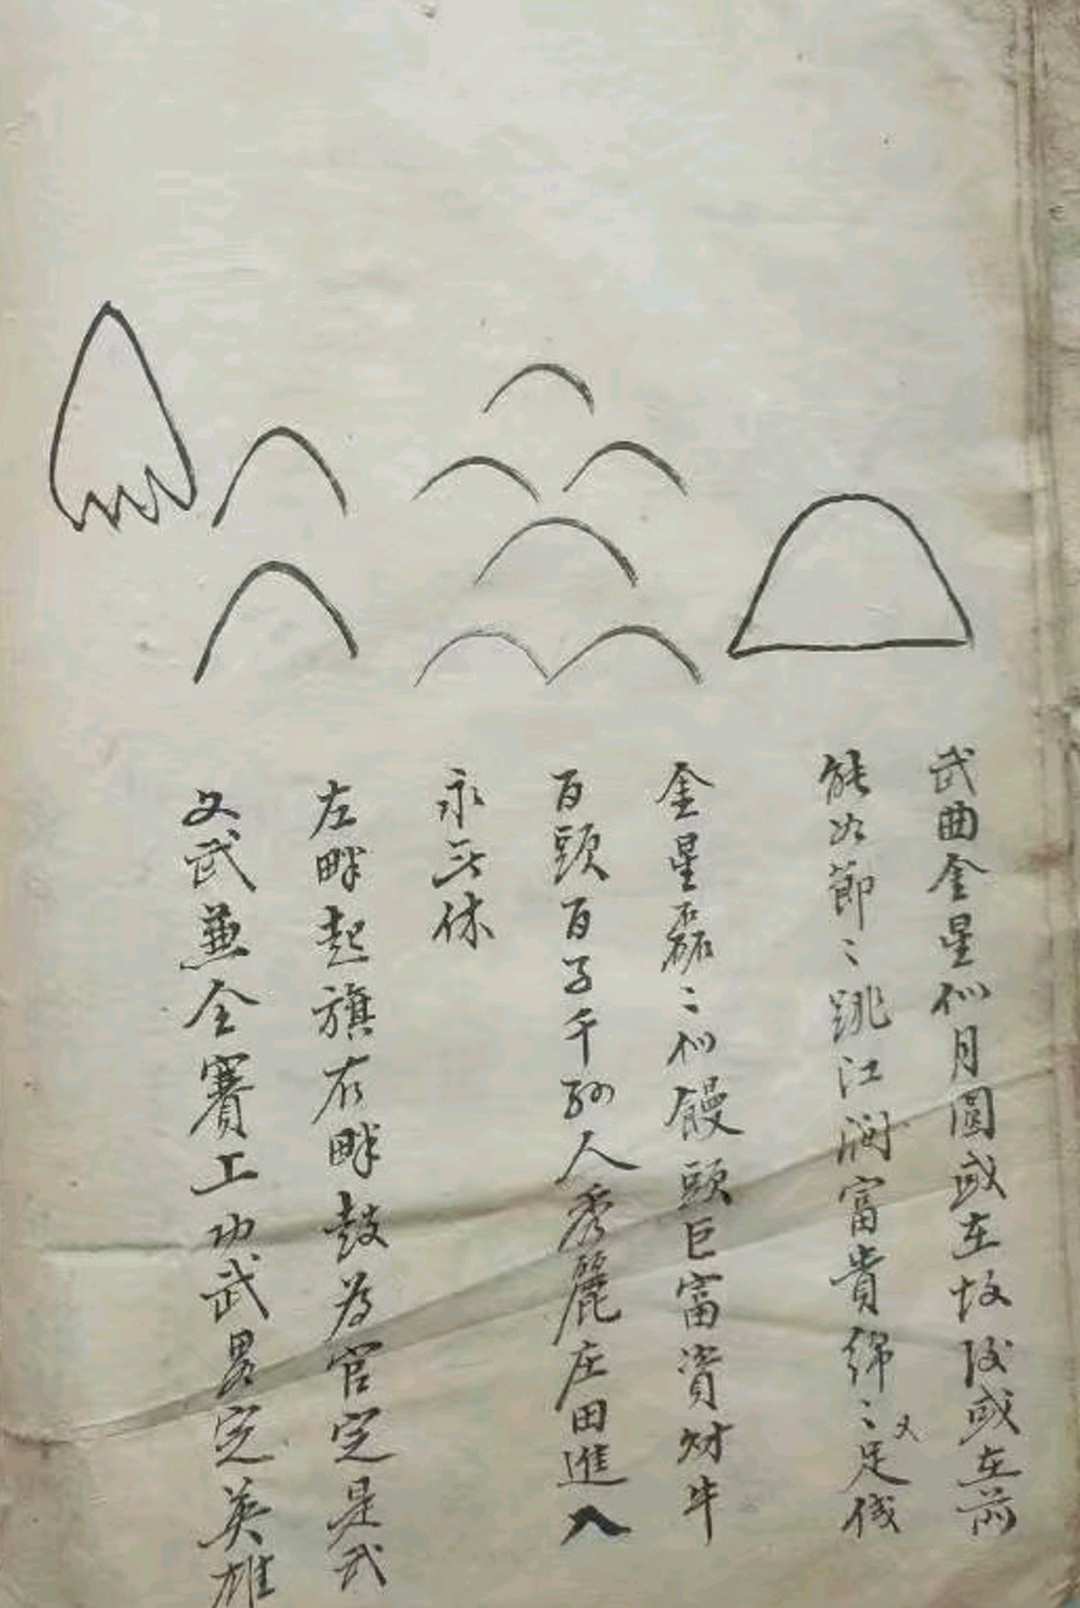 武曲金星似月圓或在坟后或在前
能如節〻跳江湖富貴綿〻又足錢
金星磊〻似饅頭巨富資财牛
百頭百子千孙人秀麗庄田進入
永无休
左畔起旗右畔鼓为官定是武
文武兼全賽上功武畧定英雄